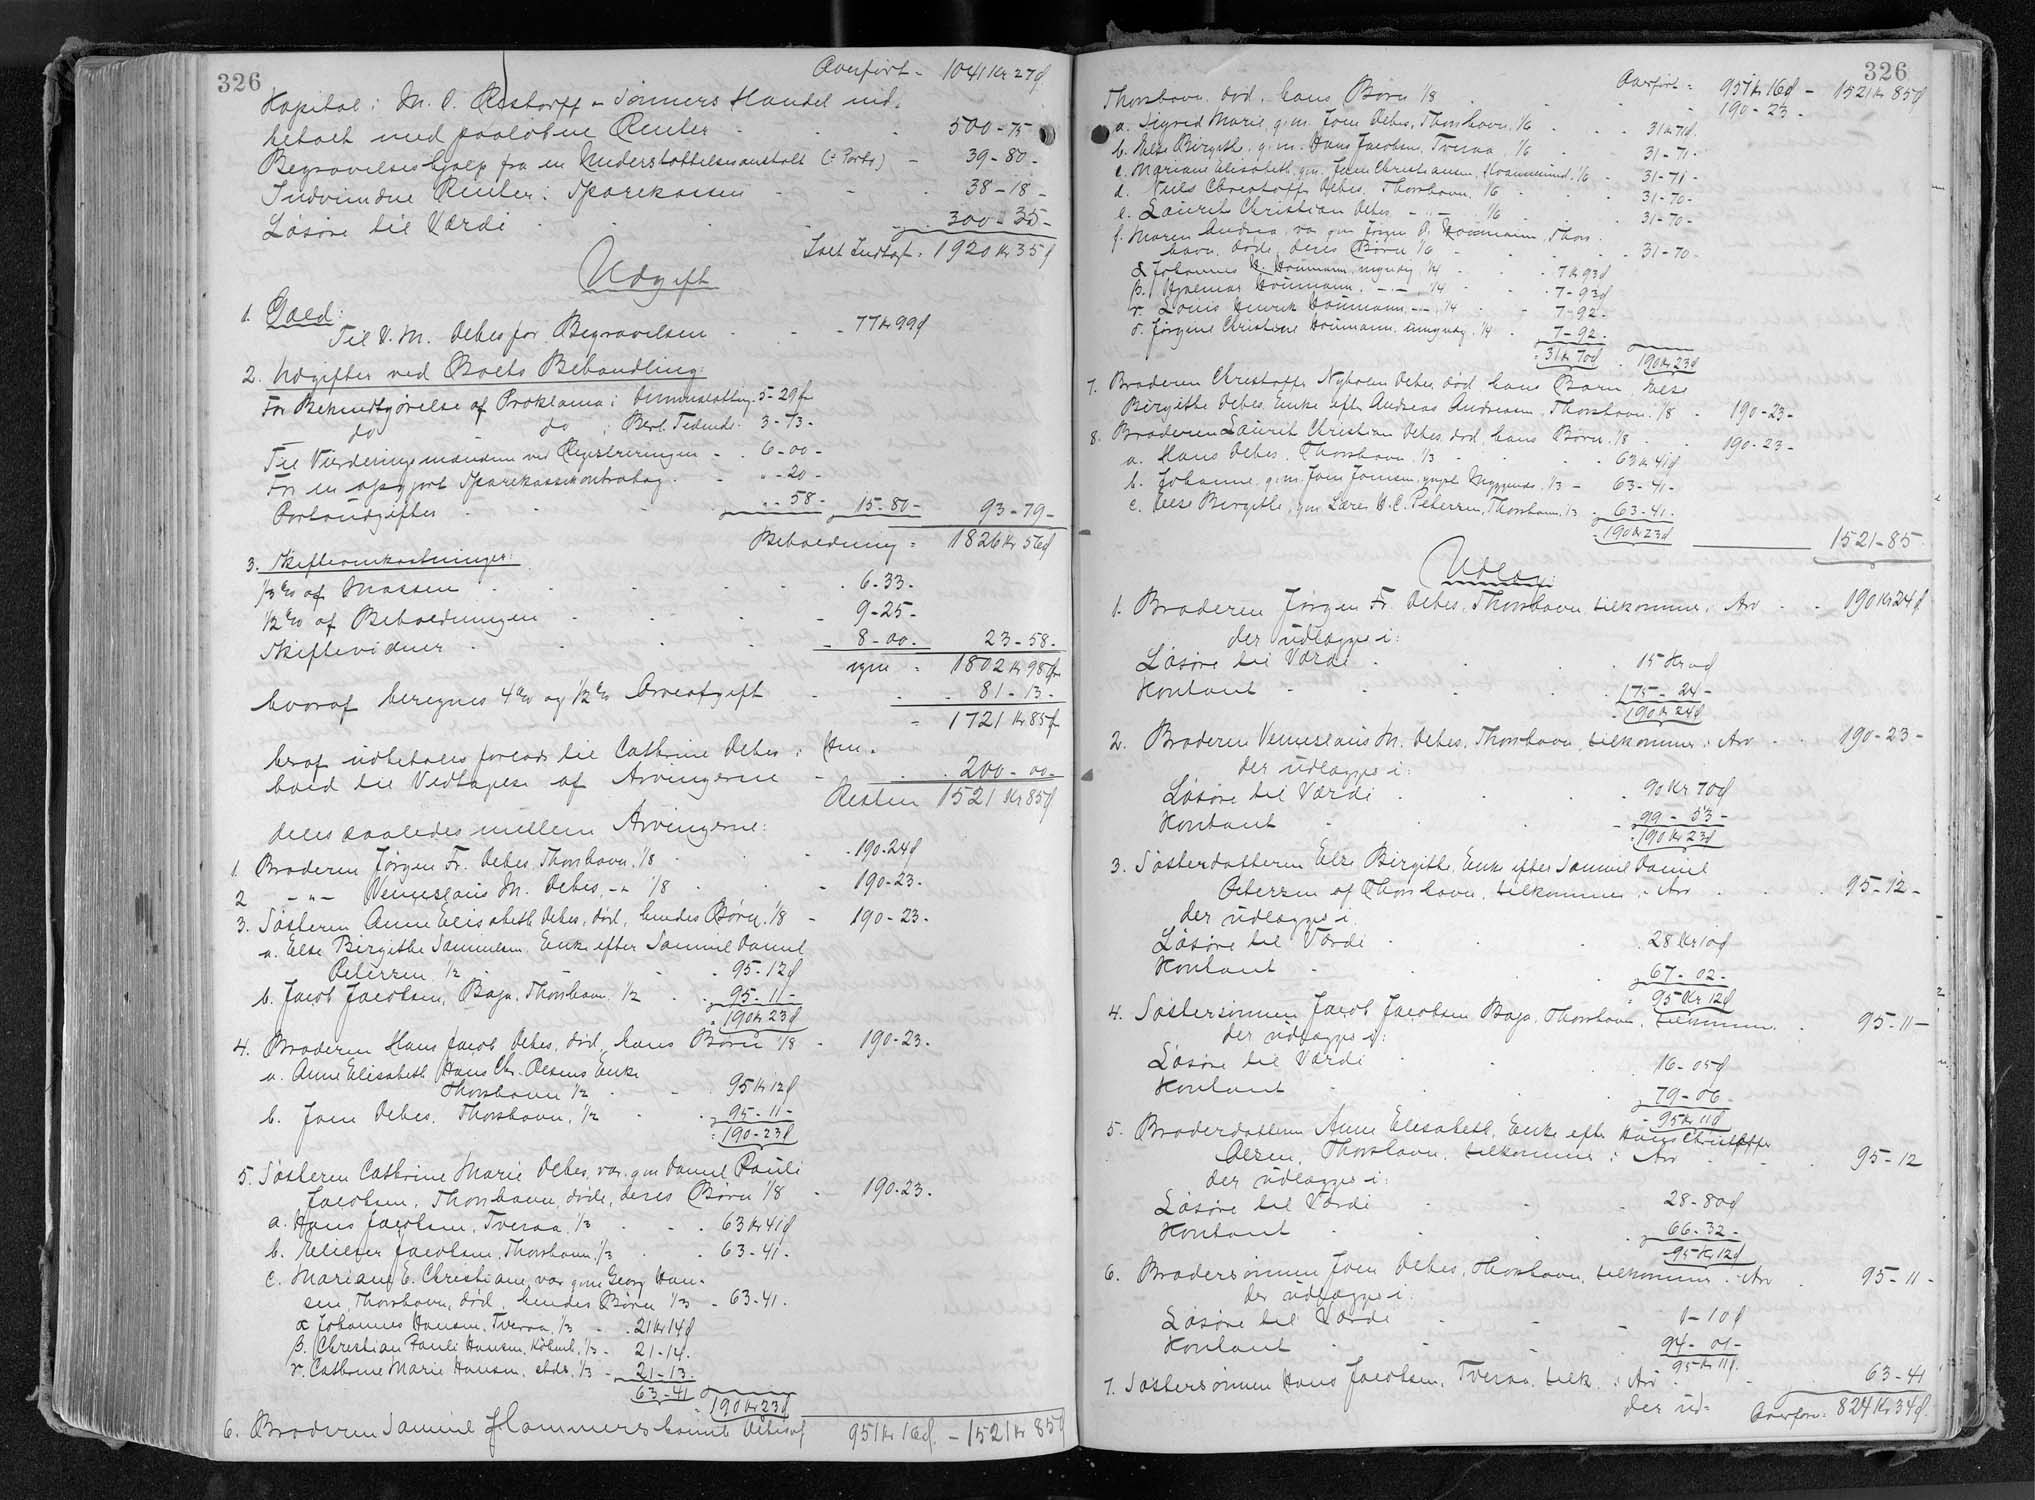 326
Overført - 1041 Kr 27 ø
Kapital i M. C. Restorff & Sönners Handel ind-
betalt med paaløbne Renter - 500 - 75 -
Begravelseshjælp fra en Understøttelsesanstalt (÷ Porto) - 39 - 80 -
Indvundne Renter i Sparekassen - 38 - 18 -
Løsøre til Værdi - 300 - 35 -
Ialt Indtægt = 1920 Kr 35 ø
Udgift
1. Gæld:
Til V. M. Debes for Begravelsen - 77 Kr 99 ø
2. Udgifter ved Boets Behandling:
For Bekendtgørelse af Proklama i Dimmalætting. 5 - 29 ø
do do i Berl. Tidende. 3 - 73 -
Til Vurderingsmændene ved Registreringen - 6 - 00 -
For en opgjort Sparekassekontrabog. - " - 20 -
Portoudgifter - " - 58 - 15 - 80 - 93 - 79 -
Beholdning = 1826 Kr 56 ø
3. Skifteomkostninger:
1/3 % af Massen - 6 - 33 -
1/2 % af Beholdningen - 9 - 25 -
Skiftevidner - 8 - 00 - 23 - 58 -
igen = 1802 Kr 98 ø
hvoraf beregnes 4 % og 1/2 % Arveafgift - 81 - 13 -
= 1721 Kr 85 ø
heraf udbetales forlods til Cathrine Debes i Hen-
hold til Vedtagelse af Arvingerne - 200 - 00 -
Resten 1521 Kr 85 ø
deles saaledes mellem Arvingerne:
1. Broderen Jørgen Fr. Debes, Thorshavn, 1/8 - 190 - 24 ø
2 - " - Venceslaus M. Debes, - " 1/8 - 190 - 23 -
3. Søsteren Anne Elisabeth Debes, død, hendes Børn. 1/8 - 190 - 23 -
a. Else Birgithe Samuelsen, Enke efter Samuel Daniel
Petersen 1/2 - 95 - 12 ø
b. Jacob Jacobsen, Bager, Thorshavn 1/2 - 95 - 11 -
= 190 Kr 23 ø
4. Broderen Hans Jacob Debes, død, hans Børn 1/8 - 190 - 23 -
a. Anne Elisabeth Hans Chr. Olsens Enke
Thorshavn 1/2 - 95 Kr 12 ø
b. Joen Debes, Thorshavn, 1/2 - 95 - 11 -
= 190 - 23 ø
5. Søsteren Cathrine Marie Debes, var gm Daniel Pauli
Jacobsen, Thorshavn, døde, deres Børn 1/8 - 190 - 23 -
a. Hans Jacobsen, Tveraa, 1/3 - 63 Kr 41 ø
b. Elieser Jacobsen, Thorshavn, 1/3 - 63 - 41 -
c. Mariane E. Christiane, var gm Georg Han-
sen, Thorshavn, død, hendes Børn 1/3 - 63 - 41 -
α Johannes Hansen, Tveraa, 1/3 - 21 Kr 14 ø
β. Christian Pauli Hansen, Købnh., 1/3 - 21 - 14 -
γ. Cathrine Marie Hansen, stds. 1/3 - 21 - 13 -
63 - 41 = 190 Kr 23 ø
6. Broderen Samuel Hammershaimb Debes af 951 Kr 16 ø - 1521 Kr 85 ø
326
Overført = 951 Kr 16 ø - 1521 Kr 85 ø
Thorshavn, død, hans Børn 1/8 - 190 - 23 -
a. Sigrid Marie, g.m. Joen Debes, Thorshavn, 1/6 - 31 Kr 71 ø
b. Else Birgith, g.m. Hans Jacobsen, Tveraa, 1/6 - 31 - 71 -
c. Mariane Elisabeth, gm. Joen Christiansen, 1/6 - 31 - 71 -
d. Niels Christoffer Debes, Thorshavn, 1/6 - 31 - 70 -
e. Laurits Christian Debes - " - 1/6 - 31 - 70 -
f. Maren Andrea, var gm Jørgen P. Houmann, Thors-
havn, døde, deres Børn 1/6 - 31 - 70 -
α Johannes H. Houmann, myndig, 1/4 - 7 Kr 93 ø
β. Hjalmar Houmann, - " - 1/4 - 7 - 93 ø
γ. Louis Henrik Houmann, - " - 1/4 - 7 - 92 -
δ. Jørgine Christine Houmann, umyndig, 1/4 - 7 - 92 -
= 31 Kr 70 ø = 190 Kr 23 ø
7. Broderen Christoffer Nyholm Debes, død, hans Barn Else
Birgithe Debes, Enke efter Andreas Andreasen, Thorshavn. 1/8 - 190 - 23 -
8. Broderen Laurits Christian Debes, død, hans Børn. 1/8 - 190 - 23 -
a. Hans Debes, Thorshavn, 1/3 - 63 Kr 41 ø
b. Johanne, g.m. Joen Joensen, Myggenæs, 1/3 - 63 - 41 -
c. Else Birgithe, gm Lærer H. C. Petersen, Thorshavn, 1/3 - 63 - 41 -
= 190 Kr 23 ø 1521 - 85
Udlæg:
1. Broderen Jørgen Fr. Debes, Thorshavn, tilkommer i Arv - 190 Kr 24 ø
der udlægges i:
Løsøre til Værdi - 15 Kr 00 ø
Kontant - 175 - 24 -
= 190 Kr 24 ø
2. Broderen Venceslaus M. Debes, Thorshavn, tilkommer i Arv - 190 - 23 -
der udlægges i:
Løsøre til Værdi - 90 Kr 70 ø
Kontant - 99 - 53 -
= 190 Kr 23 ø
3. Søsterdatteren Else Birgithe, Enke efter Samuel Daniel
Petersen af Thorshavn, tilkommer i Arv - 95 - 12 -
der udlægges i:
Løsøre til Værdi - 28 Kr 10 ø
Kontant - 67 - 02 -
= 95 Kr 12 ø
4. Søstersønnen Jacob Jacobsen Bager, Thorshavn, tilkommer - 95 - 11 -
der udlægges i:
Løsøre til Værdi - 16 - 05 ø
Kontant - 79 - 06 -
= 95 Kr 11 ø
5. Broderdatteren Anne Elisabeth, Enke efter Hans Christoffer
Olsen, Thorshavn, tilkommer i Arv - 95 - 12
der udlægges i:
Løsøre til Værdi - 28 - 80 ø
Kontant - 66 - 32 -
= 95 Kr 12 ø
6. Brodersønnen Joen Debes, Thorshavn, tilkommer i Arv - 95 - 11 -
der udlægges i:
Løsøre til Værdi - 1 - 10 ø
Kontant - 94 - 01 -
95 Kr 11 ø.
7. Søstersønnen Hans Jacobsen, Tveraa, tilk. i Arv - 63 - 41
der ud- Overføres: 824 Kr 34 ø.